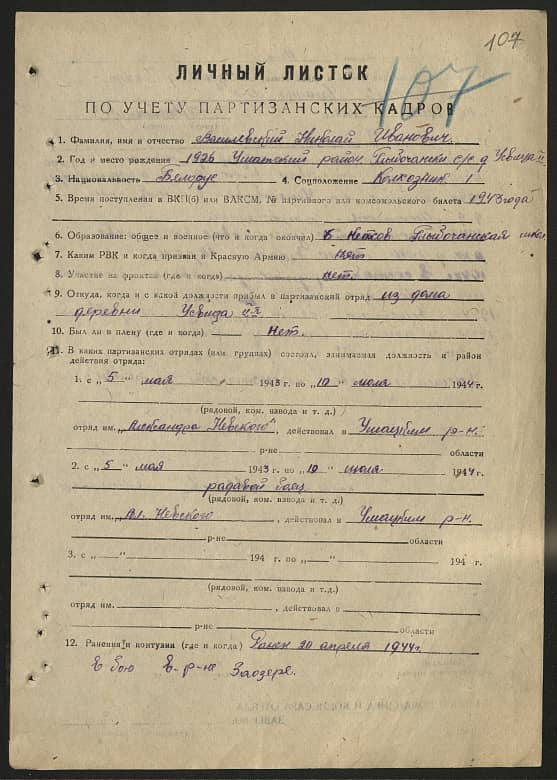 107
107
ЛИЧНЫЙ ЛИСТОК
ПО УЧЕТУ ПАРТИЗАНСКИХ КАДРОВ
1. Фамилия, имя и отчество Василевский Николай Иванович.
2. Год и место рождение 1926 Ушатский район с/с д
3. Национальность Белорус 4. Соцположение Колхозник 1
5. Время поступления в ВКП(б) или ВЛКСМ, № партийного или комсомольского билета 1943 года
6. Образование: общее и военное (что и когда окончил) 5
7. Каким РВК и когда призван в Красную Армию Нет
8. Участие на фронтах (где и когда) нет.
9. Откуда, когда и с какой должности прибыл в партизанский отряд из дома
деревни Усвида II-я
10. Был ли в плену (где и когда) Нет.
11. В каких партизанских отрядах (или группах) состоял, занимаемая должность и район
действия отряда:
1. с „5“ мая 1943 г. по „10“ июля 1944 г.
(рядовой, ком. взвода и т. д.)
отряд им. „Александра Невского“, действовал в Ушацким р-н.
р-не области
2. с „5“ мая 1943 г. по „10“ июля 1944 г.
радавой боец
(рядовой, ком. взвода и т. д.)
отряд им. Ал. Невского, действовал в Ушацким р-н.
р-не области
3. с „ “ 194 г. по „ “ 194 г.
(рядовой, ком. взвода и т.д.)
отряд им. , действовал в
р-не области
12. Ранения и контузии (где и когда) Ранен 20 апреля 1944г.
в бою в р-не Заозерс.